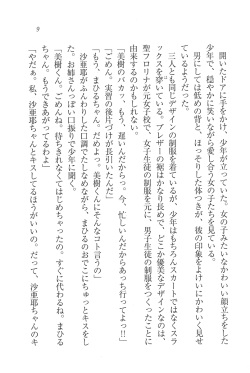 開いたドアに手をかけ、少年が立っていた。女の子みたいなかわいい顔立ちをした
少年。穏やかに笑みながら、愛しい合う女の子たちを見ている。
男にしては低めの背と、ほっそりした体つきが、彼の印象をよけいにかわいく見せ
ているようだった。
三人とも同じデザインの制服を着ているが、少年はもちろんスカートではなくスラ
ックスを穿いている。ブレザーの裾はかなり長めで、どこか優美なデザインなのは、
聖フロリナが元女子校で、女子生徒の制服を元に、男子生徒の制服をつくったことに
由来するのかもしれない。
「美樹のバカッ、もう、遅いんだから」
「ごめん。実習の後片づけが長引いたんだ」
「もう、まひるちゃん、だめよっ。美樹くんにそんなコト言うの」
「だってだってぇっ。今、忙しいんだからあっち行ってよっ!!」
沙亜耶がふんわりした口調でたしなめながら、まひるのおでこにちゅっとキスをし
た。お姉さんっぽい口振りで少年に聞く。
「美樹くん、ごめんね。待ちきれなくてはじめちゃったの。すぐに代わるね。まひる
ちゃん。もうできあがってるわよ」
「やだぁ。私、沙亜耶ちゃんとキスしてるほうがいいの。だって、沙亜耶ちゃんのキ
9